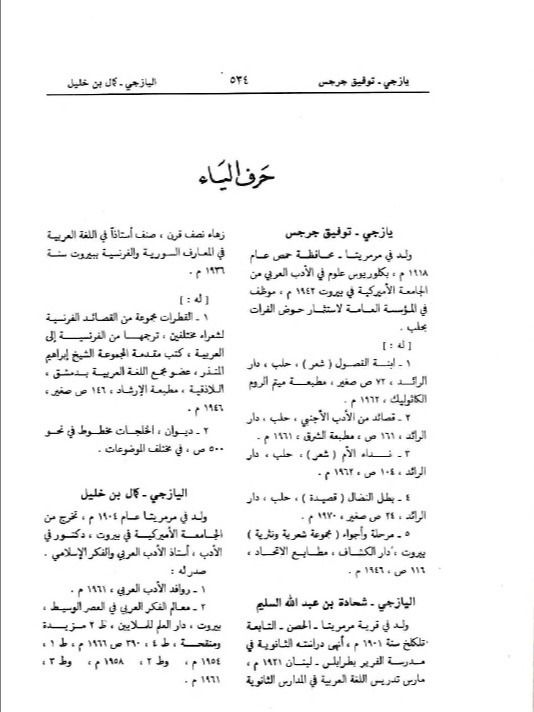 يازجي ـ توفيق جرجس
٥٣٤
اليازجي ـ كمال بن خليل
حَرف اليَاء
يازجي ـ توفيق جرجس
ولد في مرمريتا ـ محافظة حمص عام
١٩١٨ م ، بكلوريوس علوم في الأدب العربي من
الجامعة الأميركية في بيروت ١٩٤٢ م ، موظف
في المؤسسة العامة لاستثمار حوض الفرات
بحلب .
[ له : ]
١ ـ ابنة الفصول ( شعر ) ، حلب ، دار
الرائد ، ٧٢ ص صغير ، مطبعة ميتم الروم
الكاثوليك ، ١٩٦٢ م .
٢ ـ قصائد من الأدب الأجنبي ، حلب ، دار
الرائد ، ١٦١ ص ، مطبعة الشرق ، ١٩٦١ م .
٣ ـ نداء الأم ( شعر ) ، حلب ، دار
الرائد ، ١٠٤ ص ، ١٩٦٢ م .
٤ ـ بطل النضال ( قصيدة ) ، حلب ، دار
الرائد ، ٢٤ ص صغير ، ١٩٧٠ م .
٥ ـ مرحلة وأجواء ( مجموعة شعرية ونثرية )
بيروت ، دار الكشاف ، مطابع الاتحاد ،
١١٦ ص ، ١٩٤٦ م .
اليازجي ـ شحادة بن عبد الله السليم
ولد في قرية مرمريتا ـ الحصن ـ التابعة
تلكلخ سنة ١٩٠١ م ، أنهى دراسته الثانوية في
مدرسة الفرير بطرابلس ـ لبنان ١٩٢١ م ،
مارس تدريس اللغة العربية في المدارس الثانوية
زهاء نصف قرن ، صنف أستاذاً في اللغة العربية
في المعارف السورية والفرنسية ببيروت سنة
١٩٣٦ م .
[ له : ]
١ ـ القطرات مجموعة من القصائد الفرنسية
لشعراء مختلفين ، ترجمها من الفرنسية إلى
العربية ، كتب مقدمة المجموعة الشيخ إبراهيم
المنذر ، عضو مجمع اللغة العربية بدمشق ،
اللاذقية ، مطبعة الإرشاد ، ١٤٦ ص صغير ،
١٩٤٦ م .
٢ ـ ديوان ، الخلجات مخطوط في نحو
٥٠٠ ص ، في مختلف الموضوعات .
اليازجي ـ كمال بن خليل
ولد في مرمريتا عام ١٩٠٤ م ، تخرج من
الجامعة الأميركية في بيروت ، دكتور في
الأدب ، أستاذ الأدب العربي والفكر الإسلامي .
صدر له :
١ ـ روافد الأدب العربي ، ١٩٦١ م .
٢ ـ معالم الفكر العربي في العصر الوسيط ،
بيروت ، دار العلم للملايين ، ط ٢ مزيدة
ومنقحة ، ط ٤ ، ٣٩٠ ص ١٩٦٦ م ، ط ١ ،
١٩٥٤ م ، وط ٢ ، ١٩٥٨ م ، وط ٣ ،
١٩٦١ م .